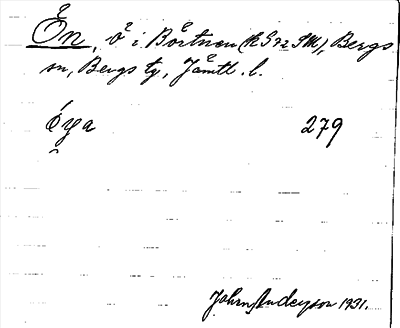 Ön, ö i Börtnen (kS72SM), Bergs
sn, Bergs tg, Jämtl. l.
óya 279
John Anderson 1931.